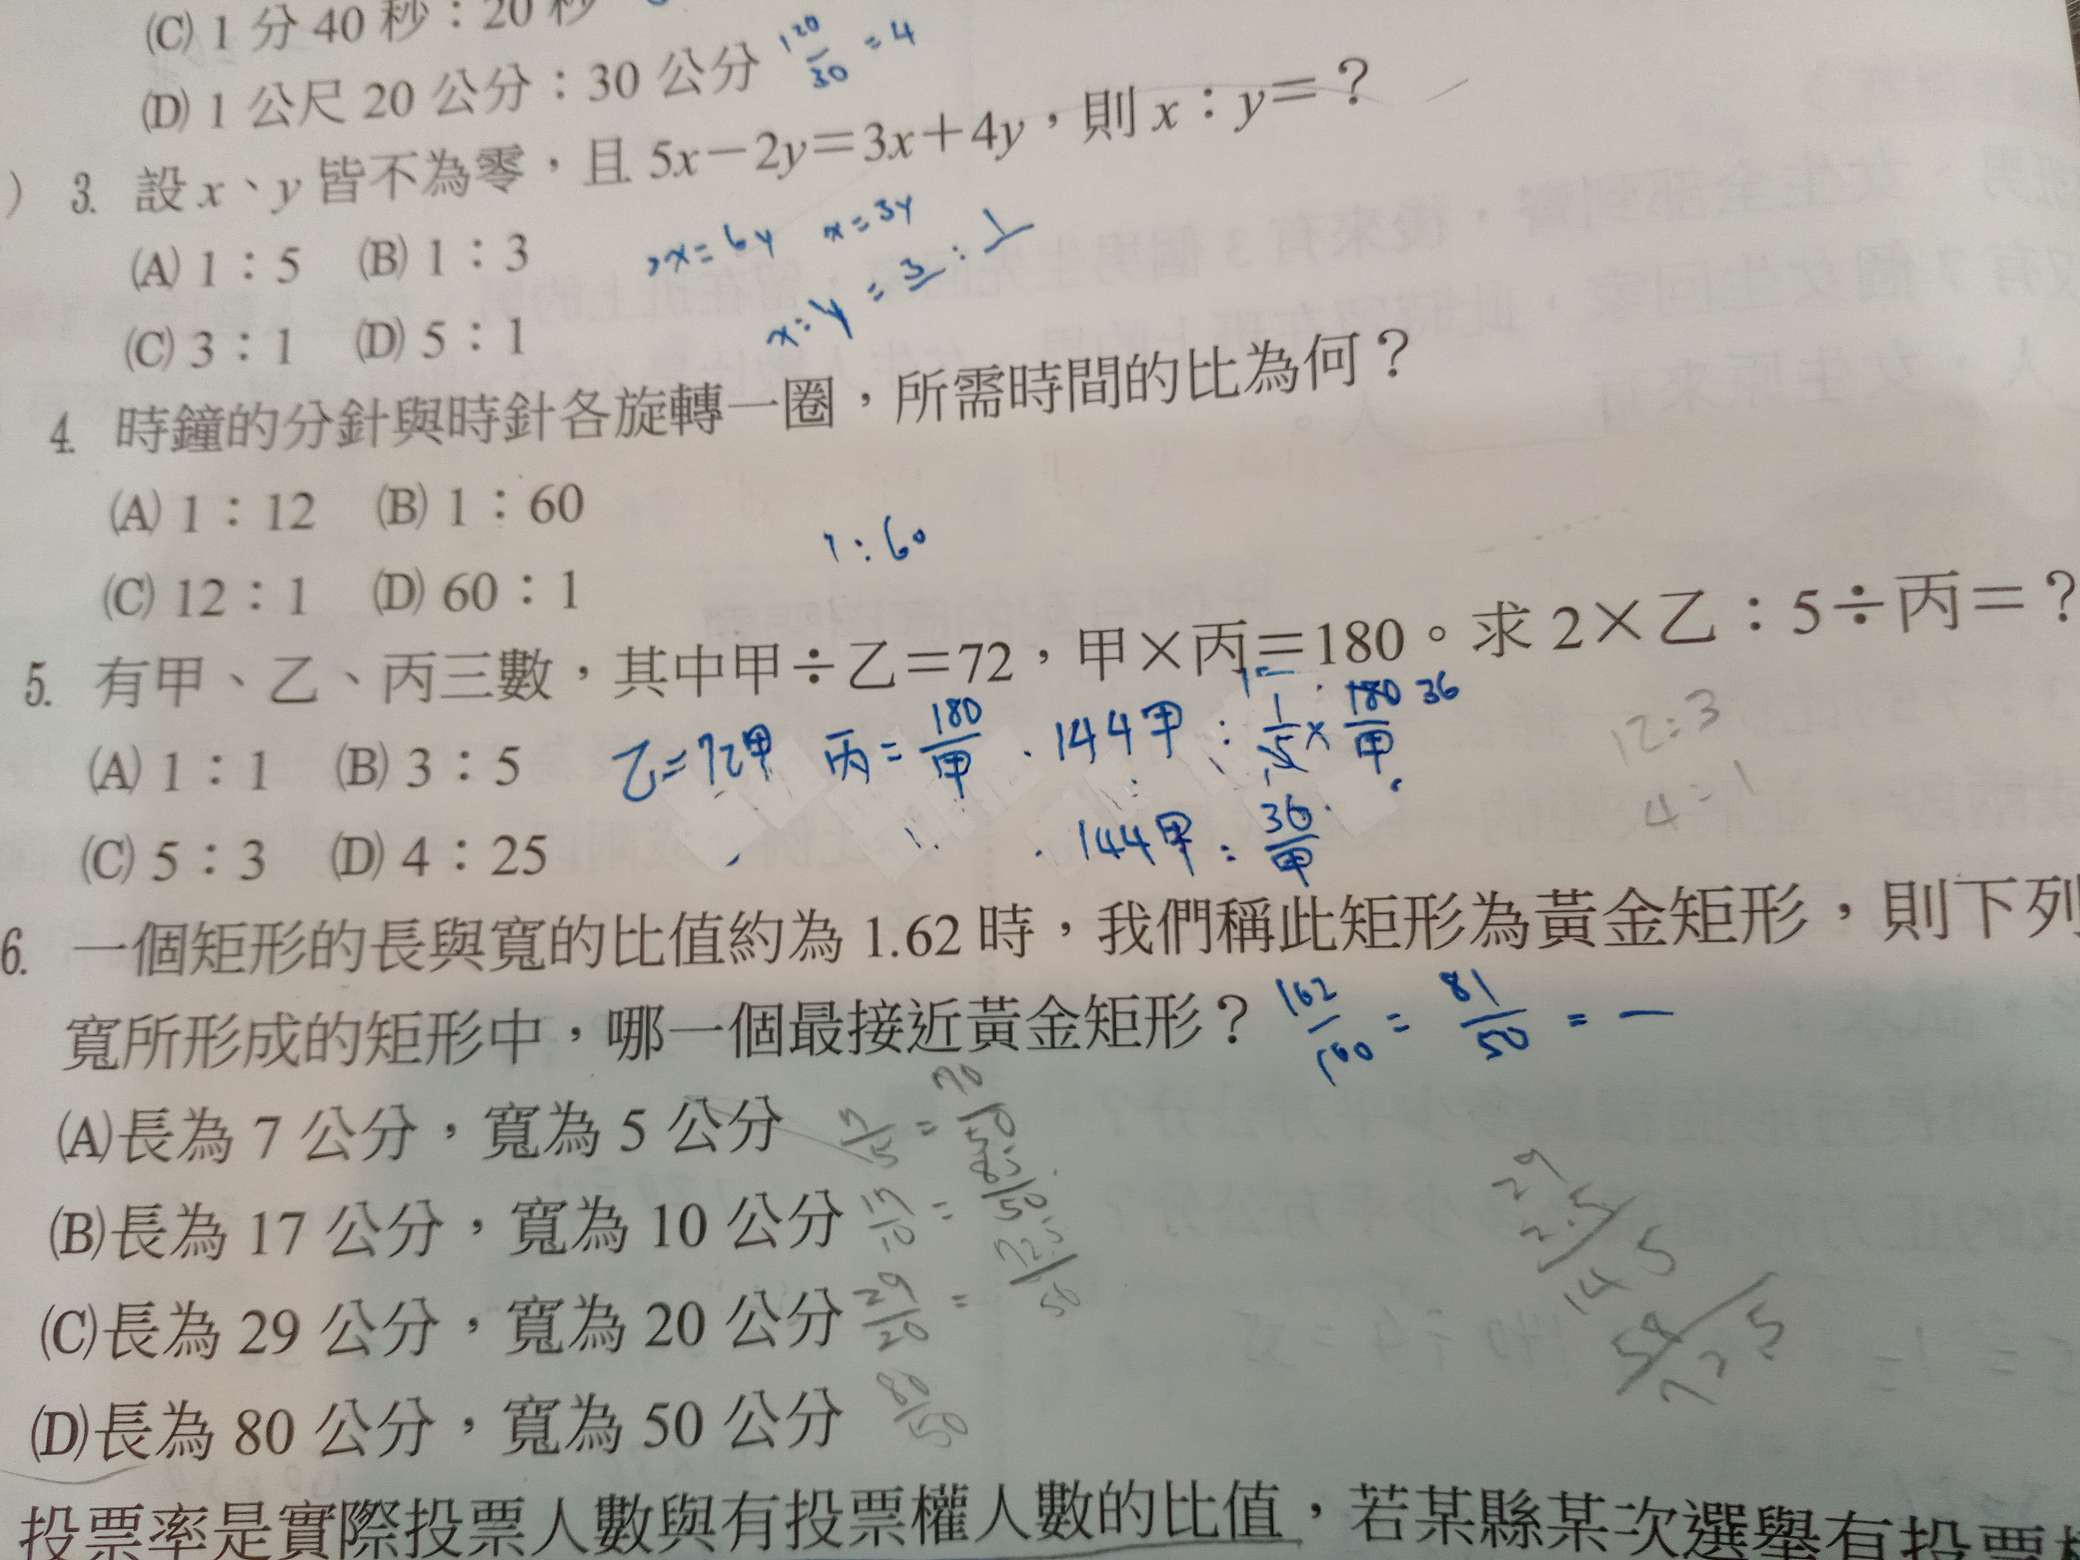 (C) 1 分 40 秒：20 秒
(D) 1 公尺 20 公分：30 公分
120/30 = 4
) 3. 設 x、y 皆不為零，且 5x－2y＝3x＋4y，則 x：y＝？
(A) 1：5 (B) 1：3
2x = 6y x = 3y
(C) 3：1 (D) 5：1
x : y = 3 : 1
4. 時鐘的分針與時針各旋轉一圈，所需時間的比為何？
(A) 1：12 (B) 1：60
1 : 60
(C) 12：1 (D) 60：1
5. 有甲、乙、丙三數，其中甲÷乙＝72，甲×丙＝180。求 2×乙：5÷丙＝？
(A) 1：1 (B) 3：5
乙 = 72甲 丙 = 180/甲 144甲 : 1/5 × 180/甲 36
12 : 3
4 : 1
(C) 5：3 (D) 4：25
144甲 : 36/甲
6. 一個矩形的長與寬的比值約為 1.62 時，我們稱此矩形為黃金矩形，則下列
寬所形成的矩形中，哪一個最接近黃金矩形？
162/100 = 81/50 = 一
(A)長為 7 公分，寬為 5 公分
7/5 = 70/50
(B)長為 17 公分，寬為 10 公分
17/10 = 85/50
(C)長為 29 公分，寬為 20 公分
29/20 = 72.5/50
(D)長為 80 公分，寬為 50 公分
80/50
投票率是實際投票人數與有投票權人數的比值，若某縣某次選舉有投票